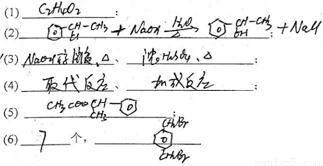 (1) C₂H₄O₂ ;
(2) CH-CH₃ + NaOH H₂O △ CH-CH₃ OH + NaCl
(3) NaOH醇溶液、△ ; 浓H₂SO₄、△ ;
(4) 取代反应 、 加成反应 ;
(5) CH₃COOCH- CH₃ ;
(6) 7 个, CH₂Br CH₂Br